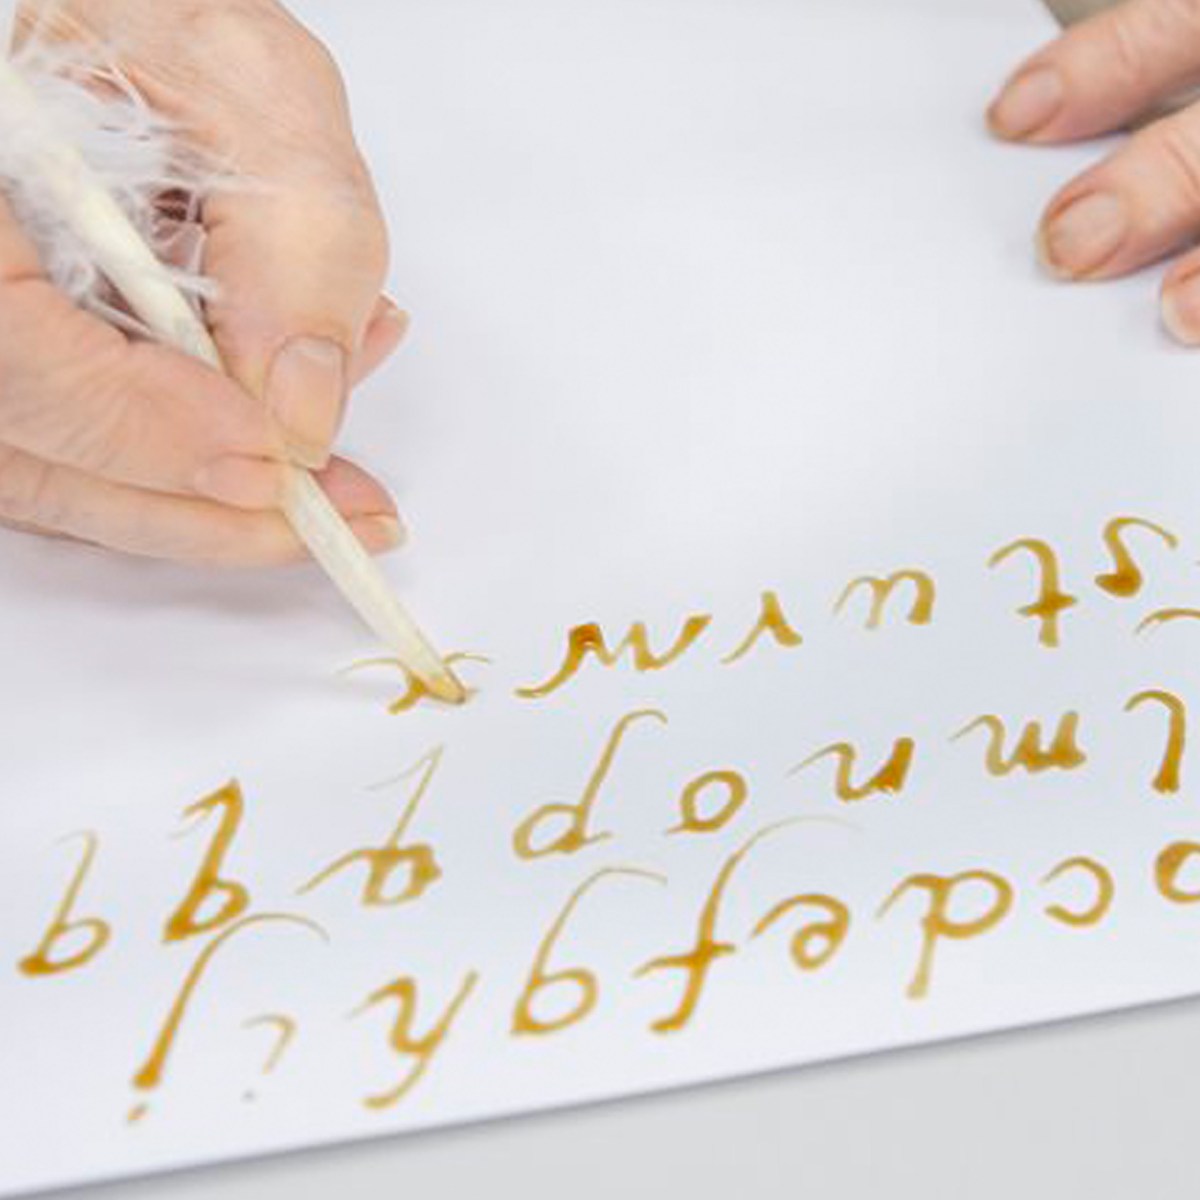 c d e f g h i j
l m n o p q q q
s t u v w x